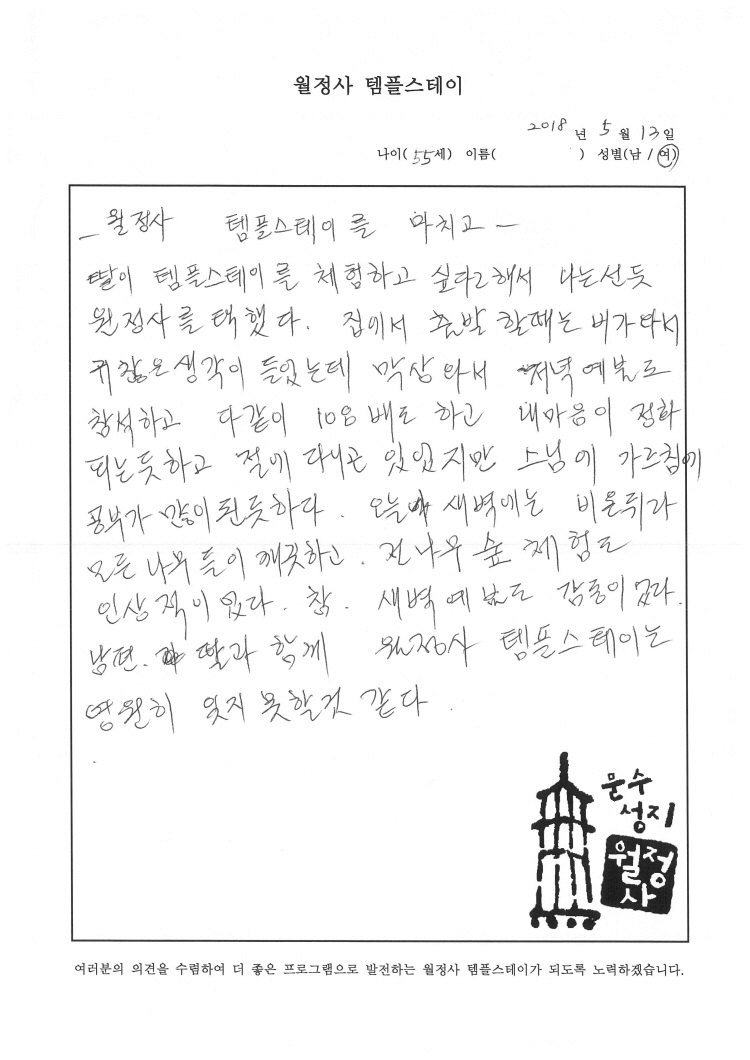 월정사 템플스테이
2018 년 5 월 13일
나이( 55 세) 이름( ) 성별(남 / 여)
- 월정사 템플스테이를 마치고 -
딸이 템플스테이를 체험하고 싶다고해서 나는선듯
월정사를 택했다. 집에서 출발 할때는 비가와서
귀찮은생각이 들었는데 막상와서 저녁예불도
참석하고 다같이 108 배도 하고 내마음이 정화
되는듯하고 절에 다니곤 있었지만 스님에 가르침에
공부가 많이된듯하다. 오늘 새벽에는 비온뒤라
모든 나무들이 깨끗하고. 전나무 숲 체험도
인상적이였다. 참. 새벽예불도 감동이였다.
남편. 딸과 함께 월정사 템플스테이는
영원히 잊지 못할것 같다.
문수
성지
월정
사
여러분의 의견을 수렴하여 더 좋은 프로그램으로 발전하는 월정사 템플스테이가 되도록 노력하겠습니다.